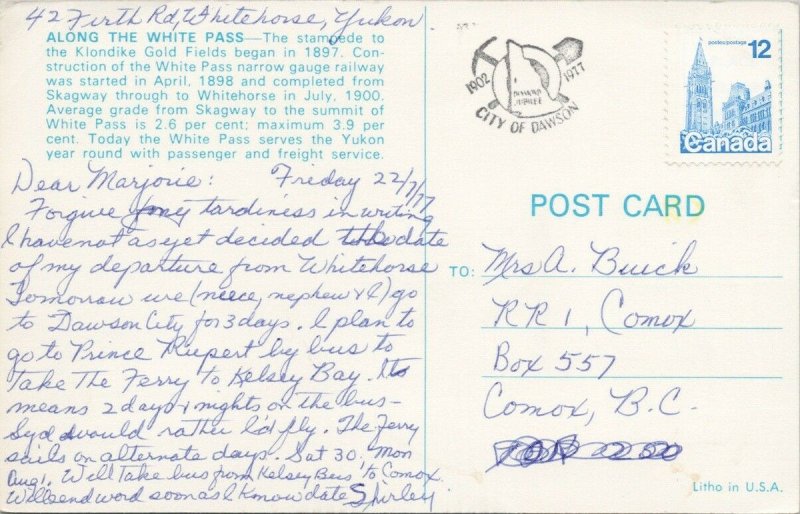 42 Firth Rd, Whitehorse, Yukon
ALONG THE WHITE PASS—The stampede to
the Klondike Gold Fields began in 1897. Con-
struction of the White Pass narrow gauge railway
was started in April, 1898 and completed from
Skagway through to Whitehorse in July, 1900.
Average grade from Skagway to the summit of
White Pass is 2.6 per cent; maximum 3.9 per
cent. Today the White Pass serves the Yukon
year round with passenger and freight service.
Dear Marjorie: Friday 22/7/77
Forgive my tardiness in writing
I have not as yet decided the date
of my departure from Whitehorse
Tomorrow we (neece, nephew & I) go
to Dawson City for 3 days. I plan to
go to Prince Rupert by bus to
Take The Ferry to Kelsey Bay. It
means 2 days & nights on the bus-
Syd would rather I'd fly. The Ferry
sails on alternate days. Sat 30. Mon
Aug 1. Will Take bus from Kelsey to Comox.
Will send word soon as I know date Shirley
1902 1977
DIAMOND
JUBILEE
CITY OF DAWSON
postes/postage 12
Canada
POST CARD
TO: Mrs A. Buick
RR 1, Comox
Box 557
Comox, B.C.
Litho in U.S.A.